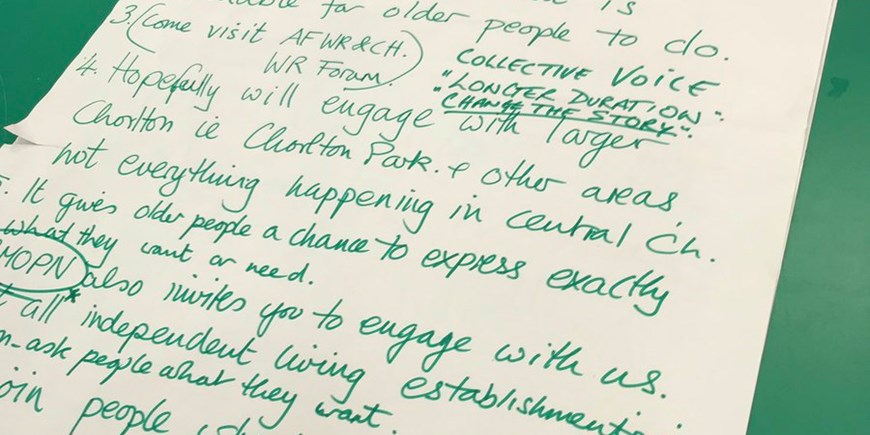 is
for older people to do.
3. (Come visit AFWR&CH.
WR Forum)
COLLECTIVE VOICE
"LONGER DURATION"
"CHANGE THE STORY"
4. Hopefully will engage with larger
Chorlton ie Chorlton Park. & other areas,
not everything happening in central Ch.
5. It gives older people a chance to express exactly
what they want or need.
MOPN also invites you to engage with us.
all* independent living establishments
ask people what they want.
people